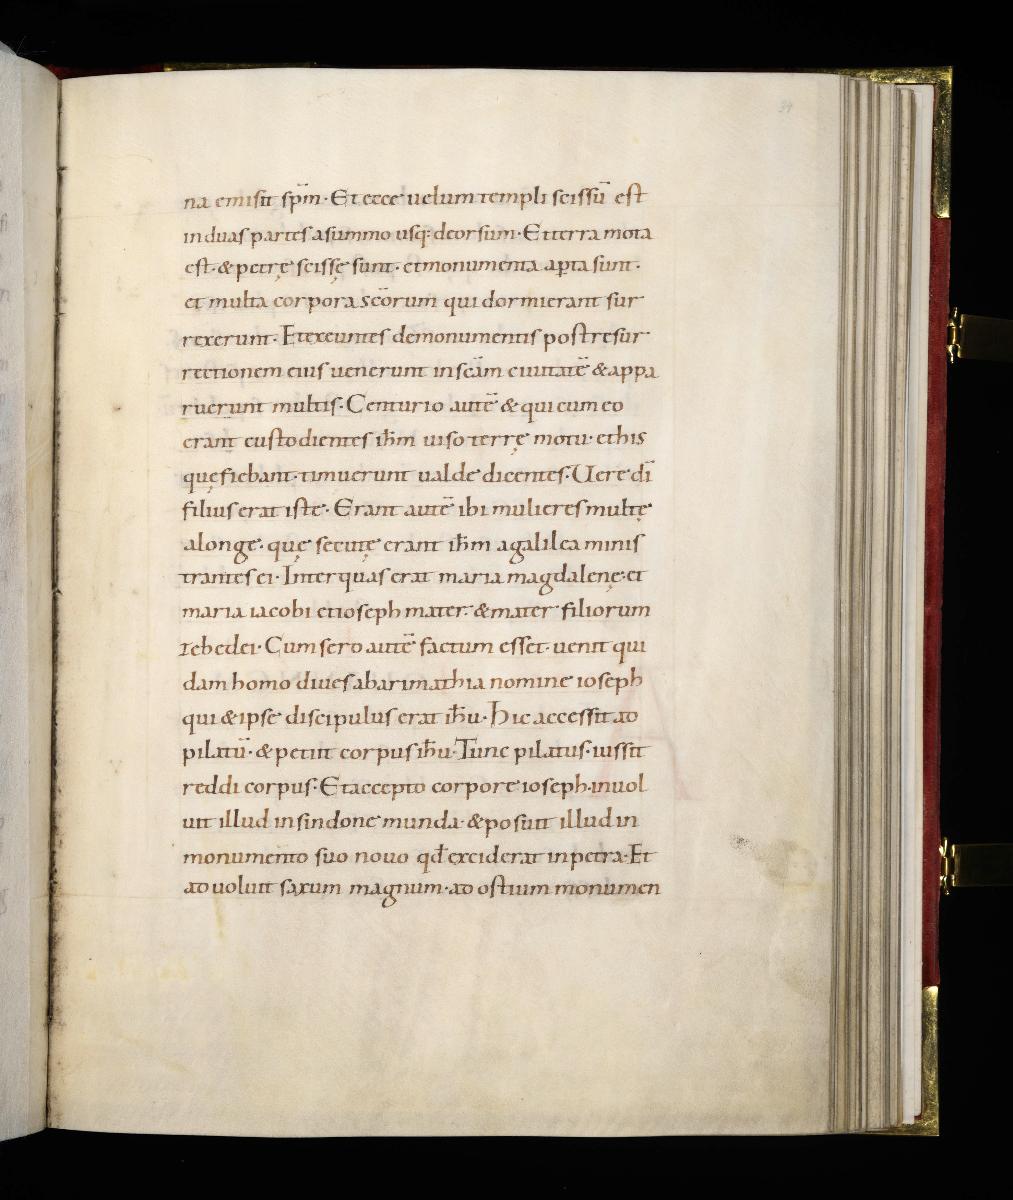 34
na emisit sp̄m· Et ecce uelum templi scissū est
in duas partes asummo usq; deorsum· Et terra mota
est· & petrę scissę sunt· et monumenta aꝑta sunt·
et multa corpora sc̄orum qui dormierant sur
rexerunt· Et exeuntes demonumentis post resur
rectionem eius uenerunt in sc̄am ciuitatē & appa
ruerunt multis· Centurio autē & qui cum eo
erant custodientes ih̄m uiso terrę motu· et his
quę fiebant· timuerunt ualde dicentes· Uere dī
filius erat iste· Erant autē ibi mulieres multę
alonge· quę secutę erant ih̄m agalilea minis
trantes ei· Inter quas erat maria magdalenę· et
maria iacobi et ioseph mater· & mater filiorum
zebedei· Cum sero autē factum esset· uenit qui
dam homo diues abarimathia nomine ioseph
qui & ipse discipulus erat ih̄u· Hic accessit ad
pilatū· & petiit corpus ih̄u· Tunc pilatus· iussit
reddi corpus· Et accepto corpore ioseph· inuol
uit illud in sindone munda· & posuit illud in
monumento suo nouo qđ exciderat in petra· Et
aduoluit saxum magnum· ad ostium monumen